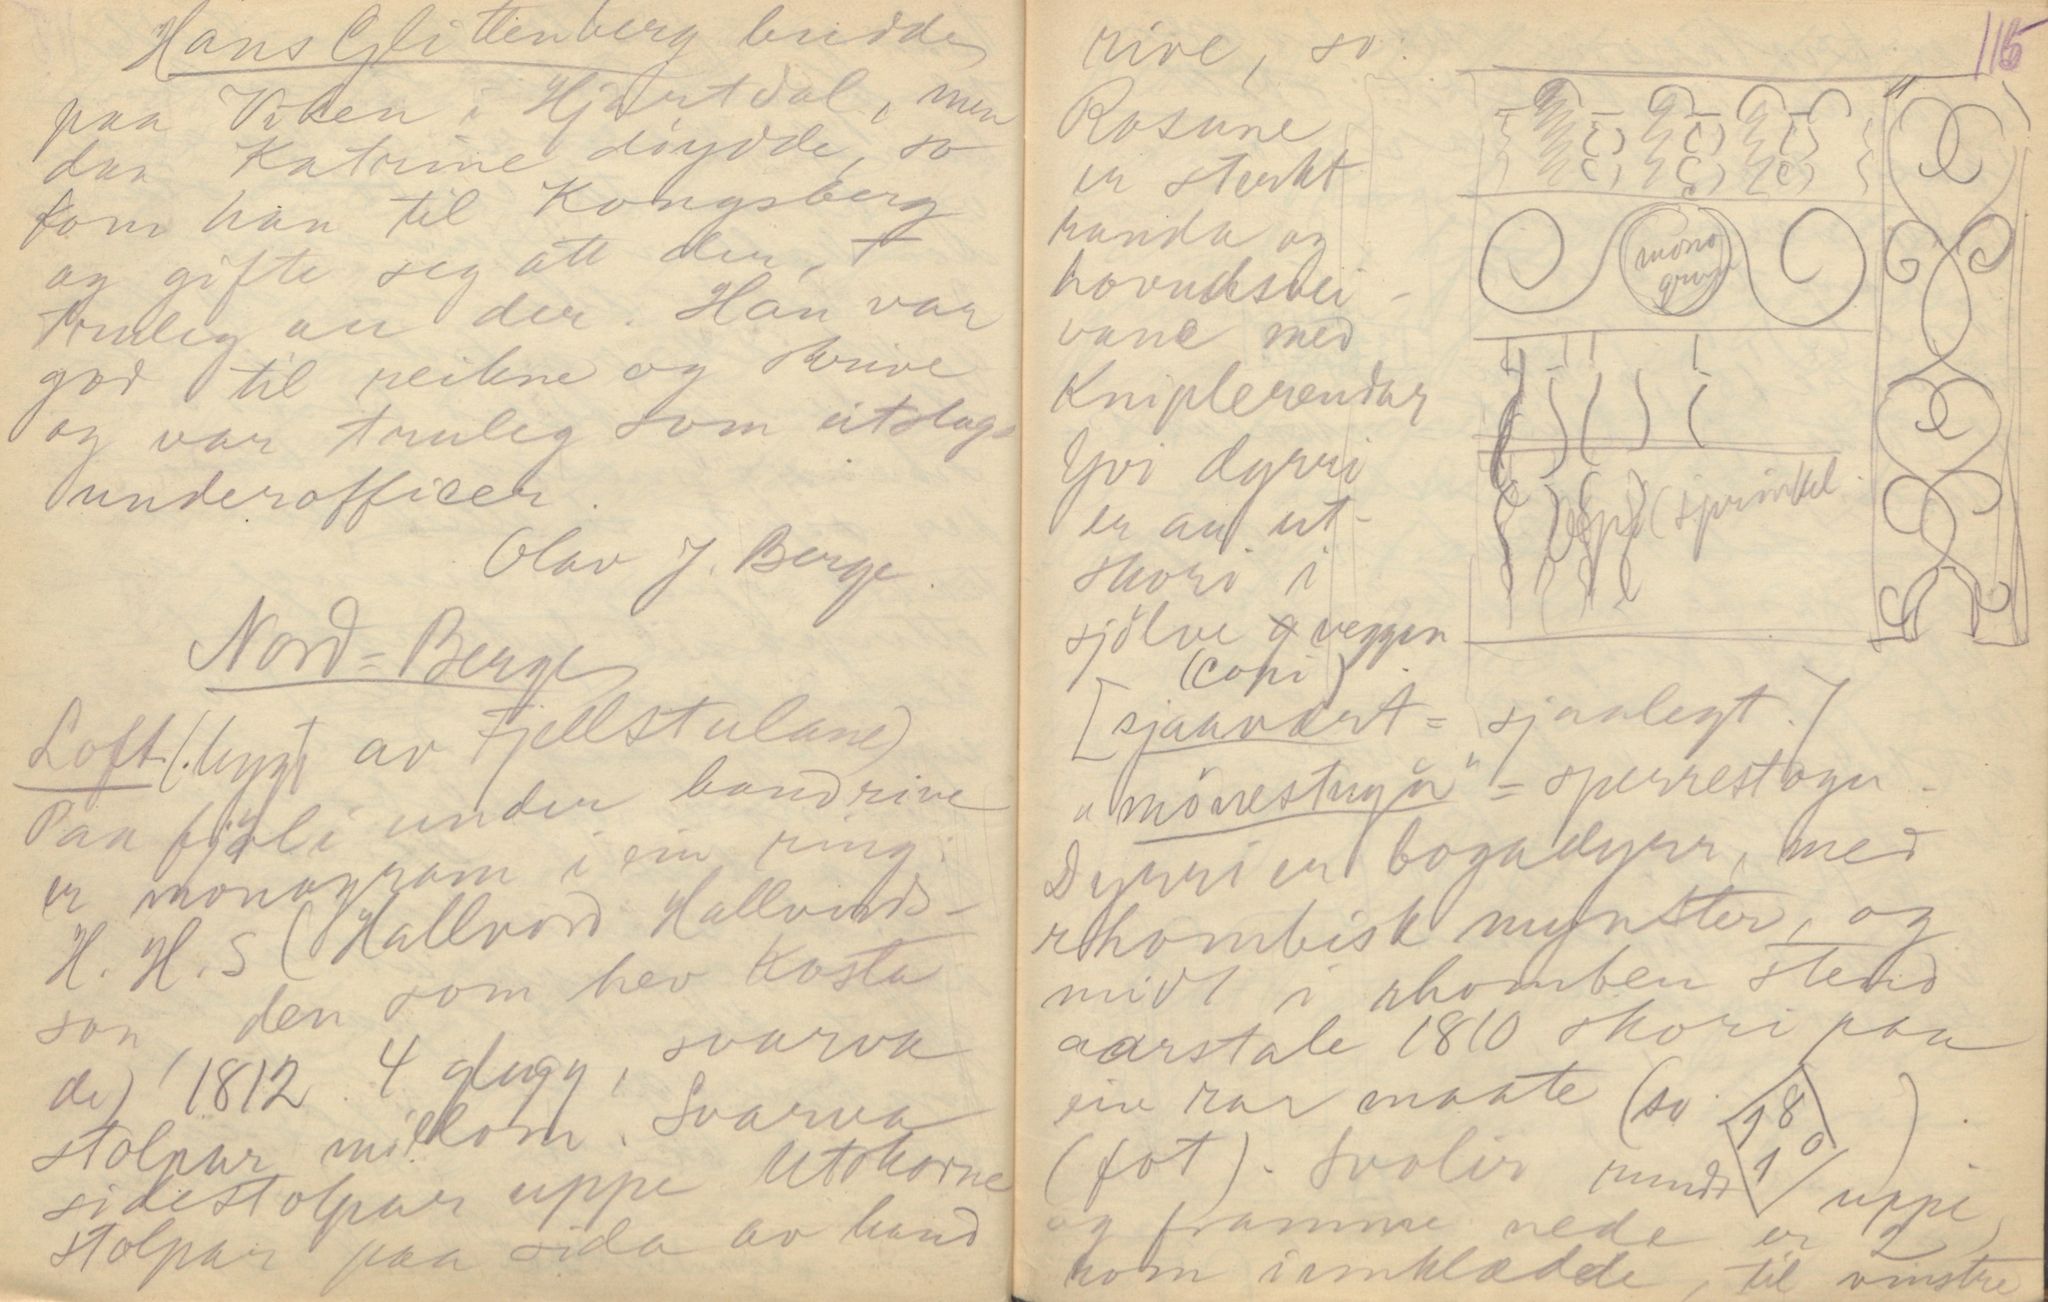 Hans Glittenberg budde
paa Viken i Hjartdal, men
daa Katrine döydde, so
kom han til Kongsberg
og gifte seg att der, †
truleg au der. Han var
god til reikne og skrive
og var truleg som utslags
underofficer.
Olav J. Berge.
Nord=Berge
Loft (bygt av Fjellstulane)
Paa fjöli under bandrive
er monogram i ein ring:
H. H. S (Hallvord Hallvords-
son, den som hev kosta
de) 1812. 4 glugg, svarva
stolpar millom. Svarva
sidestolpar uppe Utskorne
stolpar paa sida av band
115
rive, so:
Rosune
er sterkt
randa og
hovudsvei-
vane med
Kniplerendar
Yvi dyrri
er au ut-
skori i
sjölve veggen
(copi)
[sjaavært = sjaalegt.]
"mönestugå" = sperrestogu
Dyrri er bogadyrr, med
rhombisk mynster, og
midt i rhomben stend
aarstale 1810 skori paa
ein rar maate (so 18 10)
(fot). Svolir rundt uppe,
og framme nede er 2
rom innklædde, til vinstre
mono
gram
sprinkel